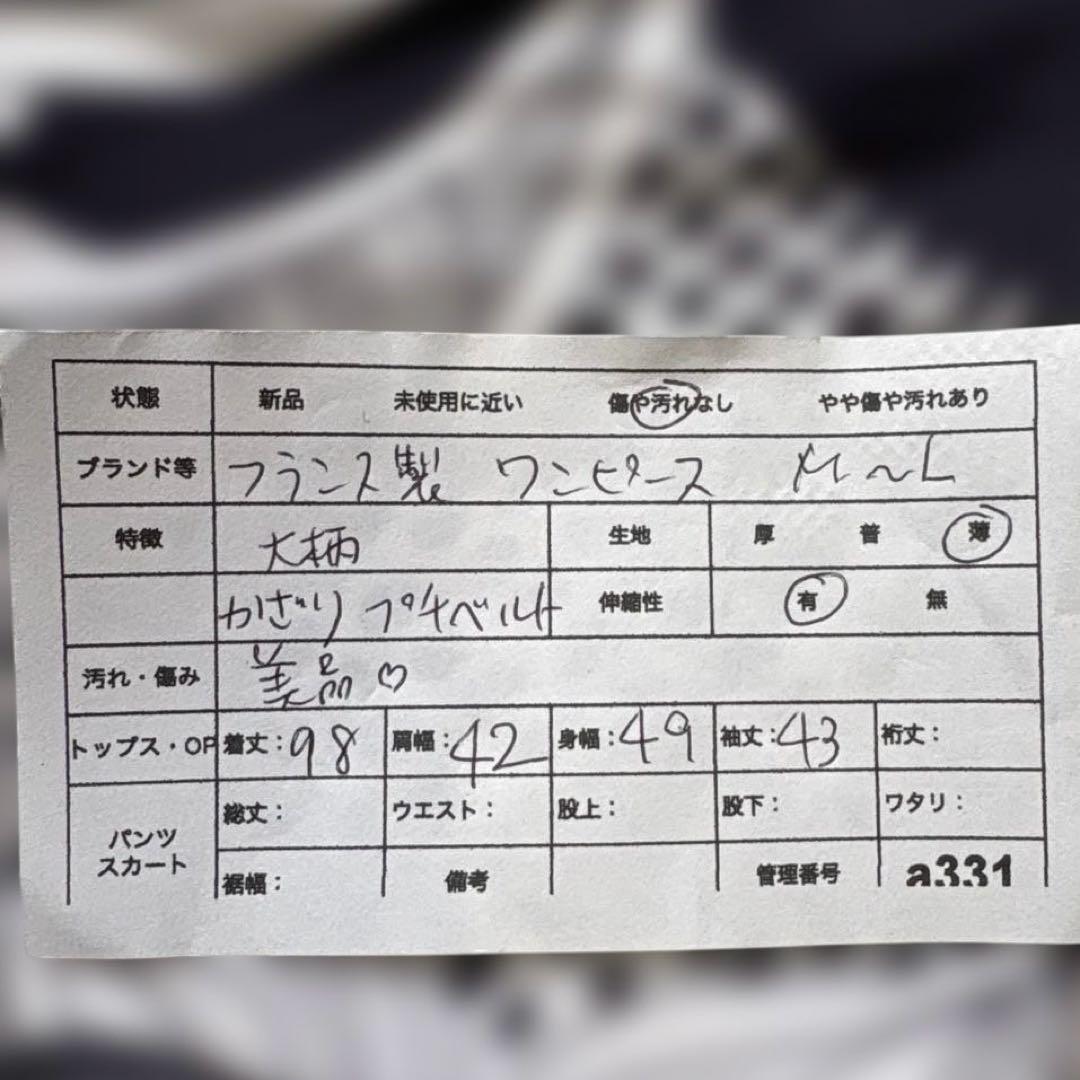 状態 新品 未使用に近い 傷や汚れなし やや傷や汚れあり
ブランド等 フランス製 ワンピース M〜L
特徴 大柄 生地 厚 普 薄
かざり プチベルト 伸縮性 有 無
汚れ・傷み 美品♡
トップス・OP 着丈:98 肩幅:42 身幅:49 袖丈:43 裄丈:
パンツ スカート
総丈: ウエスト: 股上: 股下: ワタリ:
裾幅: 備考 管理番号 a331